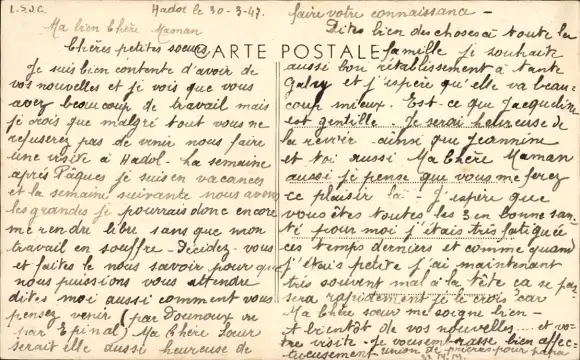 L.S.J.C.
Hadol le 30-3-47.
Ma bien Chère Maman
Chères petites soeurs
CARTE POSTALE
Je suis bien contente d'avoir de
vos nouvelles et je vois que vous
avez beaucoup de travail mais
je crois que malgré tout vous ne
refuserez pas de venir nous faire
une visite à Hadol - La semaine
après Pâques je suis en vacances
et la semaine suivante nous avons
les grandes je pourrais donc encore
me rendre libre sans que mon
travail en souffre - Décidez-vous
et faites le nous savoir pour que
nous puissions vous attendre
dites moi aussi comment vous
pensez venir (par Dounoux ou
par Epinal) Ma Chère Soeur
serait elle aussi heureuse de
faire votre connaissance -
Dites bien des choses à toute la
famille je souhaite
aussi bon rétablissement à tante
Gaby et j'espère qu'elle va beau-
coup mieux. Est-ce que Jacqueline
est gentille. Je serai heureuse de
la revoir ainsi que Jeannine
et toi aussi Ma Chère Maman
aussi je pense que vous me ferez
ce plaisir là - J'espère que
vous êtes toutes les 3 en bonne san-
té pour moi j'étais très fatiguée
ces temps derniers et comme quand
j'étais petite j'ai maintenant
très souvent mal à la tête ça se pas-
sera rapidement je le crois car
Ma Chère soeur me soigne bien -
A bientôt de vos nouvelles .... et vo-
tre visite - Je vous embrasse bien affec-
tueusement union de prières